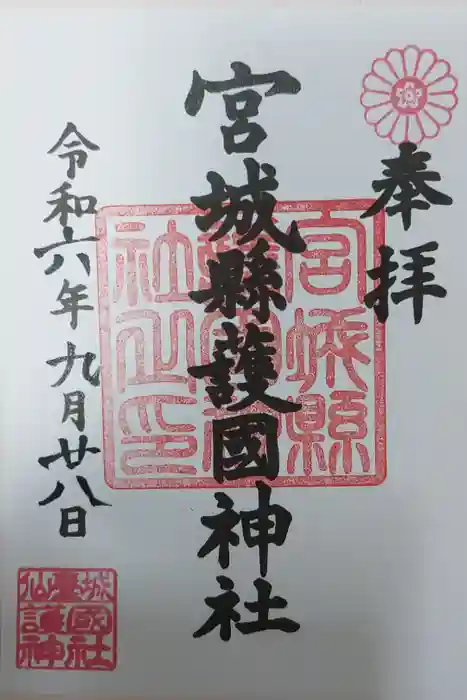 奉拝
宮城縣護國神社
宮城縣護國神社之印
令和六年九月廿八日
仙臺城護國神社